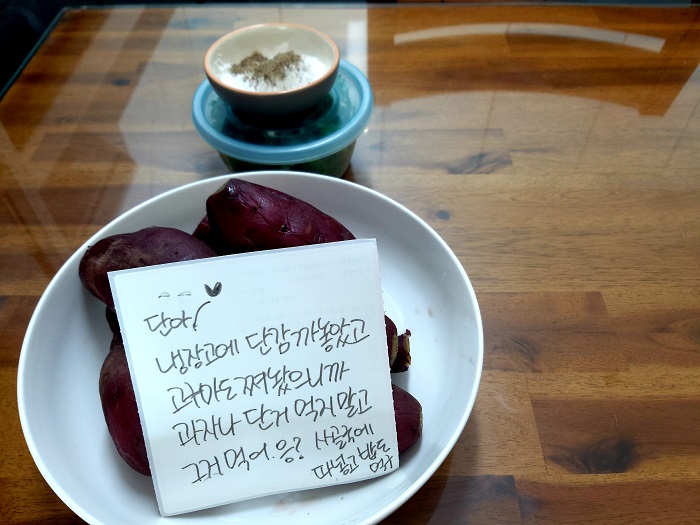 단아!
냉장고에 단감 까놓았고
고구마도 쪄놨으니까
과자나 단거 먹지말고
그거 먹어. 응? 사골국에
파넣고 밥도
먹구